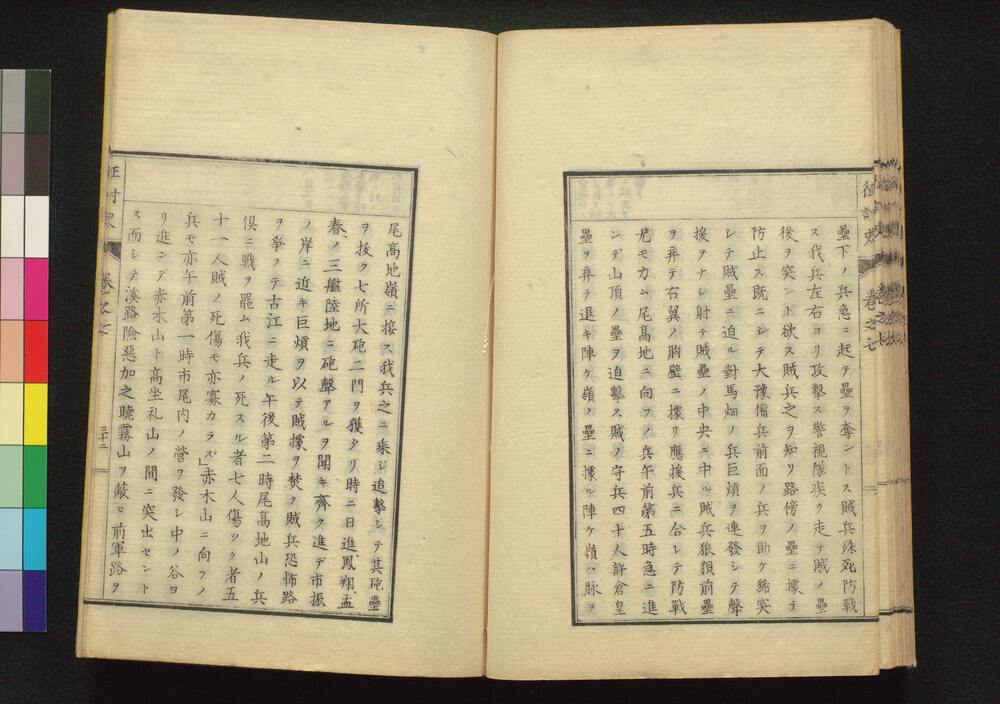 征討史 卷之七
壘下ノ兵急ニ起テ壘ヲ奪ントス賊兵殊死防戰
ス我兵左右ヨリ攻擊ス警視隊疾ク走テ賊ノ壘
後ヲ突ント欲ス賊兵之ヲ知リ路傍ノ壘ニ據テ
防止ス既ニシテ大豫備兵前面ノ兵ヲ助ケ猪突
シテ賊壘ニ迫ル對馬畑ノ兵巨煩ヲ連發シテ聲
援ヲナシ射テ賊壘ノ中央ニ中ル賊兵狼狽前壘
ヲ弃テ右翼ノ胸壁ニ據リ應援兵ニ合シテ防戰
尤モカム尾高地ニ向フノ兵午前第五時急ニ進
ンデ山頂ノ壘ヲ迫擊ス賊ノ守兵四十人許倉皇
壘ヲ弃テ退キ陣ケ嶺ノ壘ニ據ル陣ケ嶺ハ脉ヲ
尾高地嶺ニ接ス我兵之ニ乘シ追擊シテ其砲壘
ヲ拔ク七所大砲二門ヲ獲タリ時ニ日進鳳翔孟
春ノ三艦陸地ニ砲聲アルヲ聞キ齊ク進デ市振
ノ岸ニ迫キ巨煩ヲ以テ賊據ヲ焚ク賊兵恐怖路
ヲ爭フテ古江ニ走ル午後第二時尾高地山ノ兵
倶ニ戰ヲ罷ム我兵ノ死スル者七人傷ツク者五
十一人賊ノ死傷モ亦寡カラズ」赤木山ニ向フノ
兵モ亦午前第一時市尾内ノ營ヲ發シ中ノ谷ヨ
リ進ンデ赤木山ト高坐礼山ノ間ニ突出セント
ス而シテ溪路險惡加之曉霧山ヲ蔽ヒ前軍路ヲ
征討史 卷之七
三十二